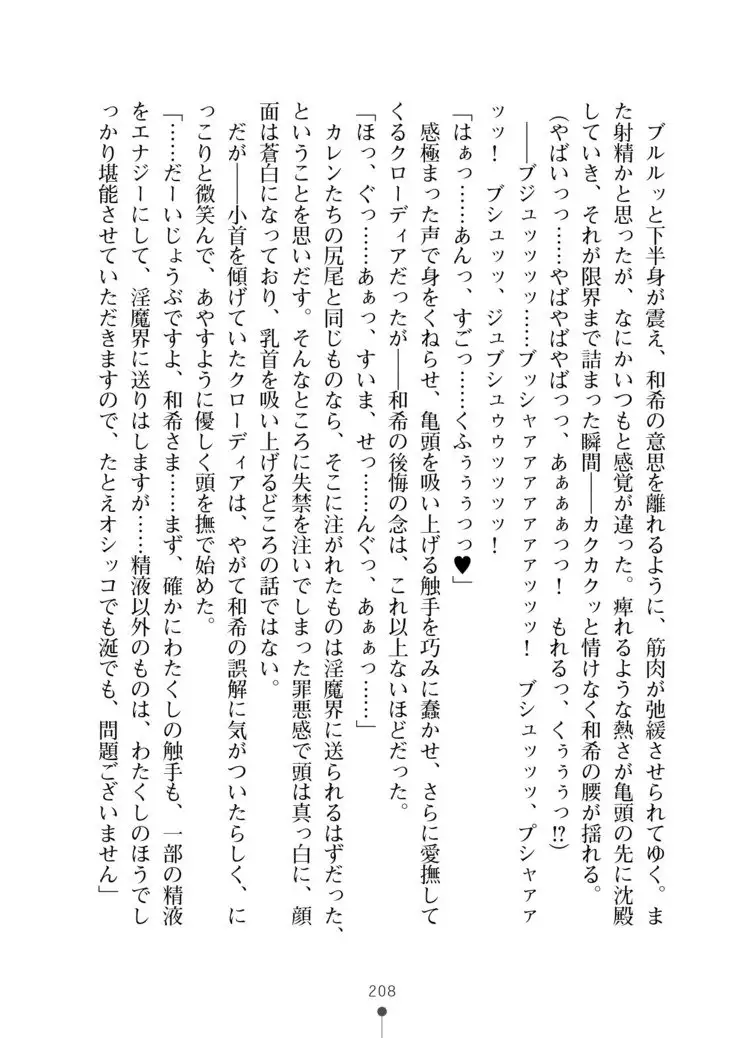 ブルルッと下半身が震え、和希の意思を離れるように、筋肉が弛緩させられてゆく。ま
た射精かと思ったが、なにかいつもと感覚が違った。痺れるような熱さが亀頭の先に沈殿
していき、それが限界まで詰まった瞬間――カクカクッと情けなく和希の腰が揺れる。
(やばいっっ……やばやばやばっっ、あぁぁぁっっ！　もれるっ、くぅぅぅっ⁉)
――ブジュッッッッ……ブッシャァァァァァァァァッッッ！　ブシュッッッ、プシャァァ
ッッ！　ブシュッッ、ジュブシュゥゥッッッッ！
「はぁっ……あんっ、すごっ……くふぅぅぅっっ♥」
感極まった声で身をくねらせ、亀頭を吸い上げる触手を巧みに蠢かせ、さらに愛撫して
くるクローディアだったが――和希の後悔の念は、これ以上ないほどだった。
「ほっ、ぐっ……あぁっ、すいま、せっ……んぐっ、あぁぁっ……」
カレンたちの尻尾と同じものなら、そこに注がれたものは淫魔界に送られるはずだった、
ということを思いだす。そんなところに失禁を注いでしまった罪悪感で頭は真っ白に、顔
面は蒼白になっており、乳首を吸い上げるどころの話ではない。
だが――小首を傾げていたクローディアは、やがて和希の誤解に気がついたらしく、に
っこりと微笑んで、あやすように優しく頭を撫で始めた。
「……だーいじょうぶですよ、和希さま……まず、確かにわたくしの触手も、一部の精液
をエナジーにして、淫魔界に送りはしますが……精液以外のものは、わたくしのほうでし
っかり堪能させていただきますので、たとえオシッコでも涎でも、問題ございません」
208